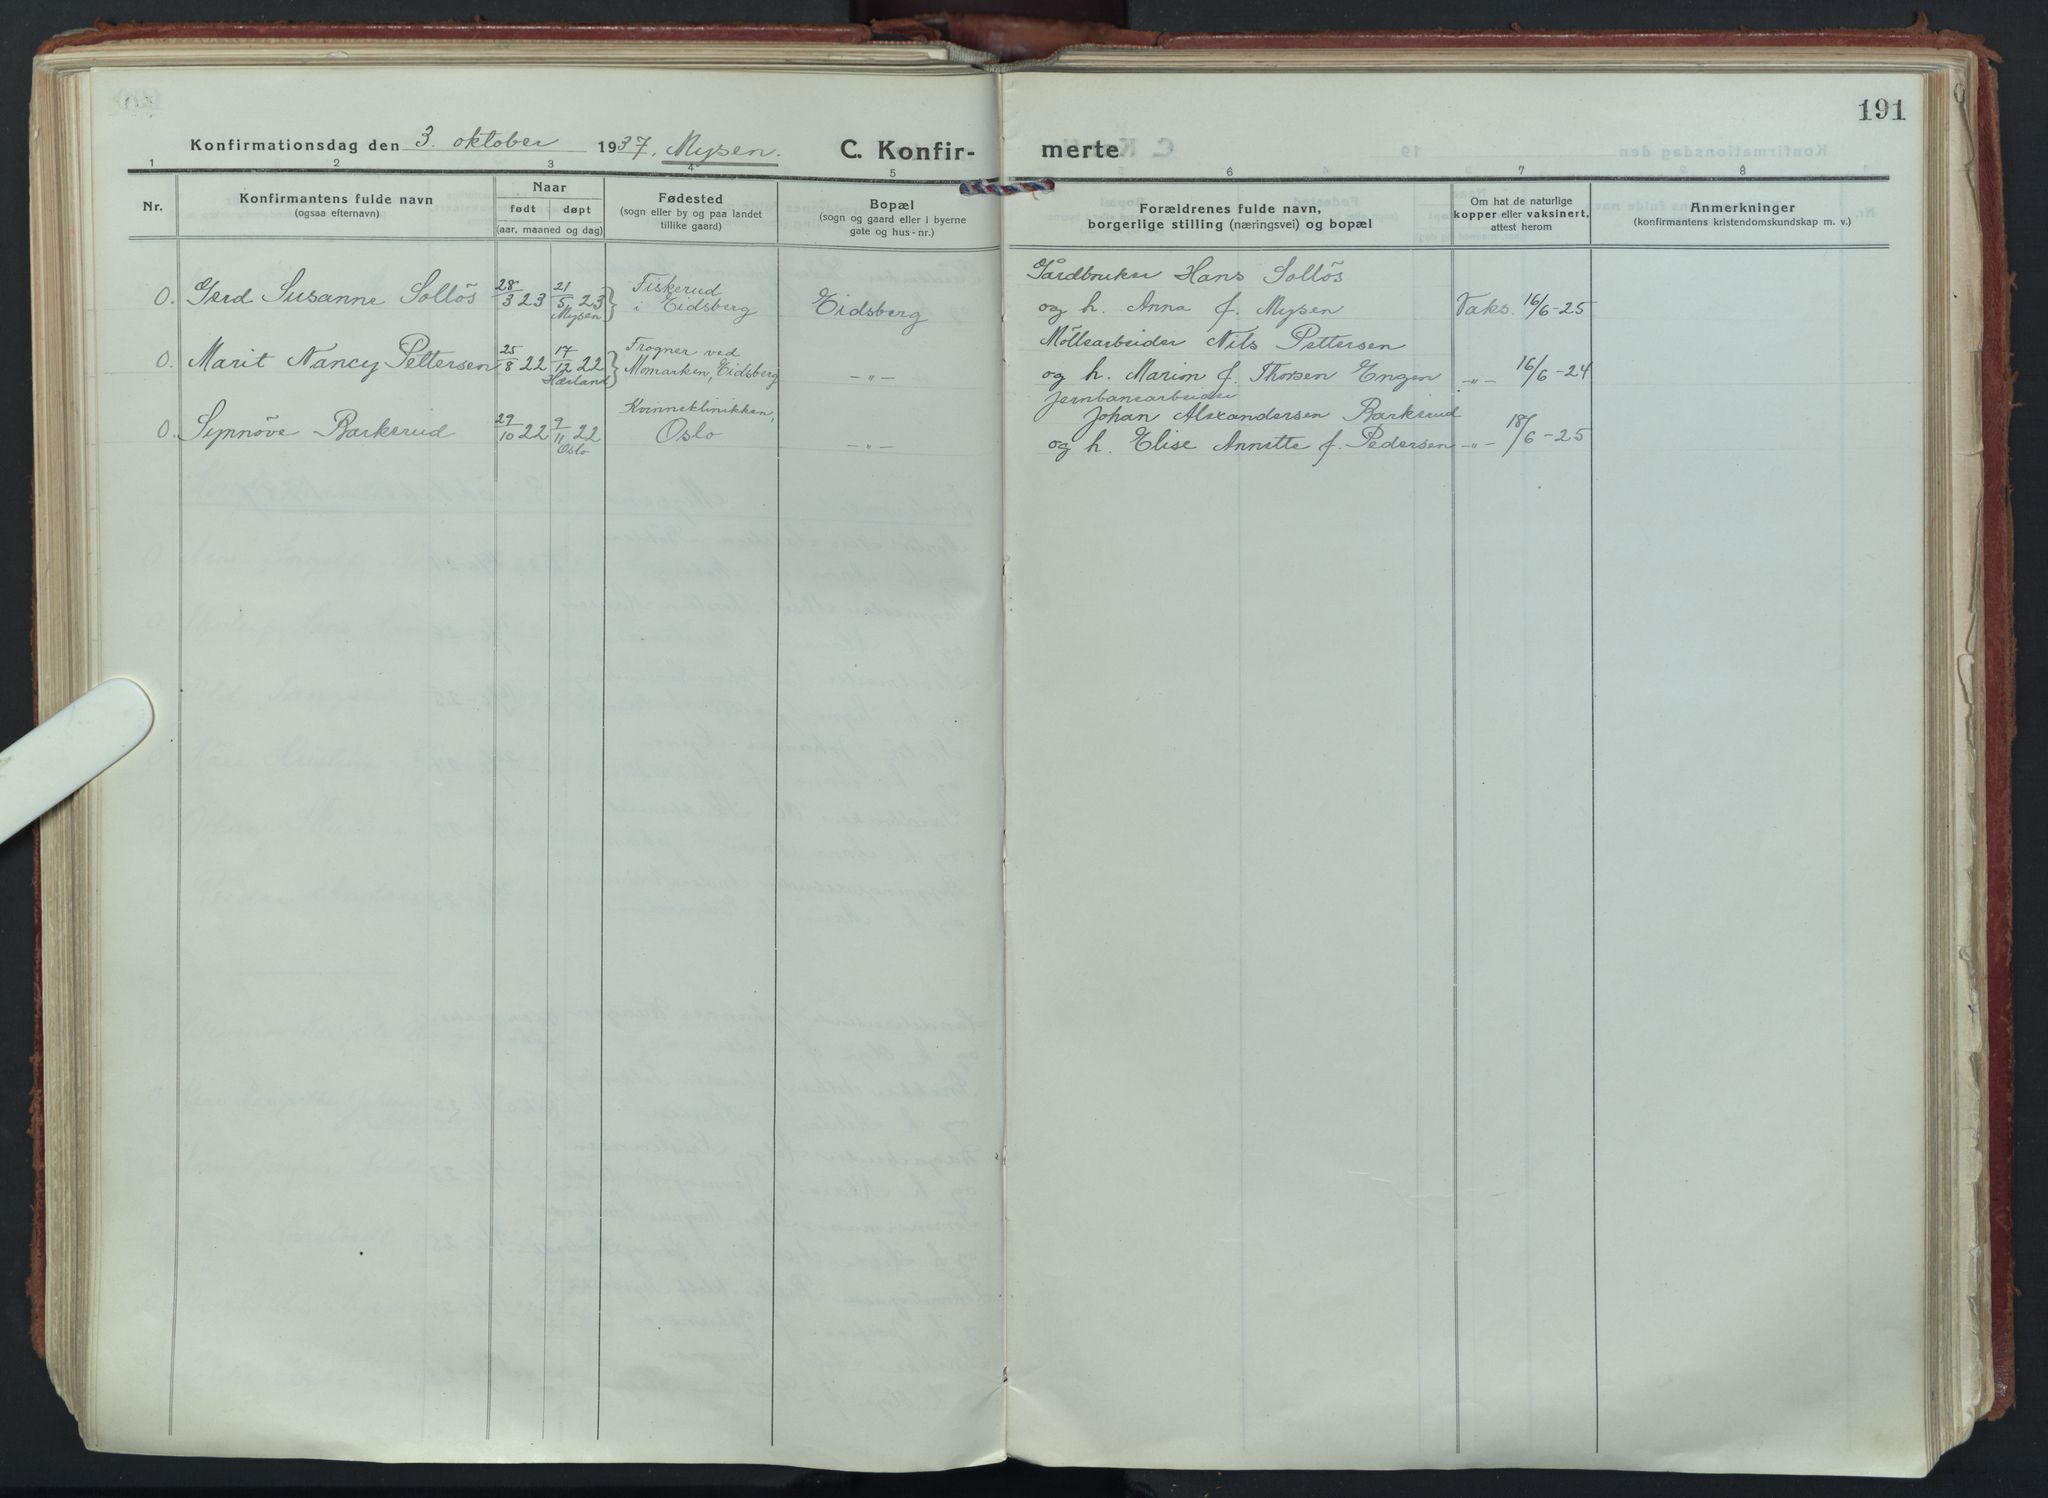 191
Konfirmationsdag den 3. oktober 1937, Mysen. C. Konfir- merte
1 2 3 4 5 6 7 8
Nr.
Konfirmantens fulde navn
(ogsaa efternavn)
Naar
født døpt
(aar, maaned og dag)
Fødested
(sogn eller by og paa landet
tillike gaard)
Bopæl
(sogn og gaard eller i byerne
gate og hus-nr.)
Forældrenes fulde navn,
borgerlige stilling (næringsvei) og bopæl
Om hat de naturlige
kopper eller vaksinert,
attest herom
Anmerkninger
(konfirmantens kristendomskundskap m. v.)
0. Gerd Susanne Solløs
28/3 23
21/5 23
Mysen
Fiskerud
i Eidsberg
Eidsberg
Gårdbruker Hans Solløs
og h. Anna f. Mysen
Vaks. 16/6-25
0. Marit Nancy Pettersen
25/8 22
17/12 22
Hærland
Frogner ved
Momarken, Eidsberg
-"-
Möllearbeider Nils Pettersen
og h. Marion f. Thorsen Engen
-"- 16/6-24
0. Synnöve Barkerud
29/10 22
9/11 22
Oslo
Kvinneklinikken,
Oslo
-"-
jernbanearbeider
Johan Alexandersen Barkerud
og h. Elise Annette f. Pedersen
-"- 18/6-25